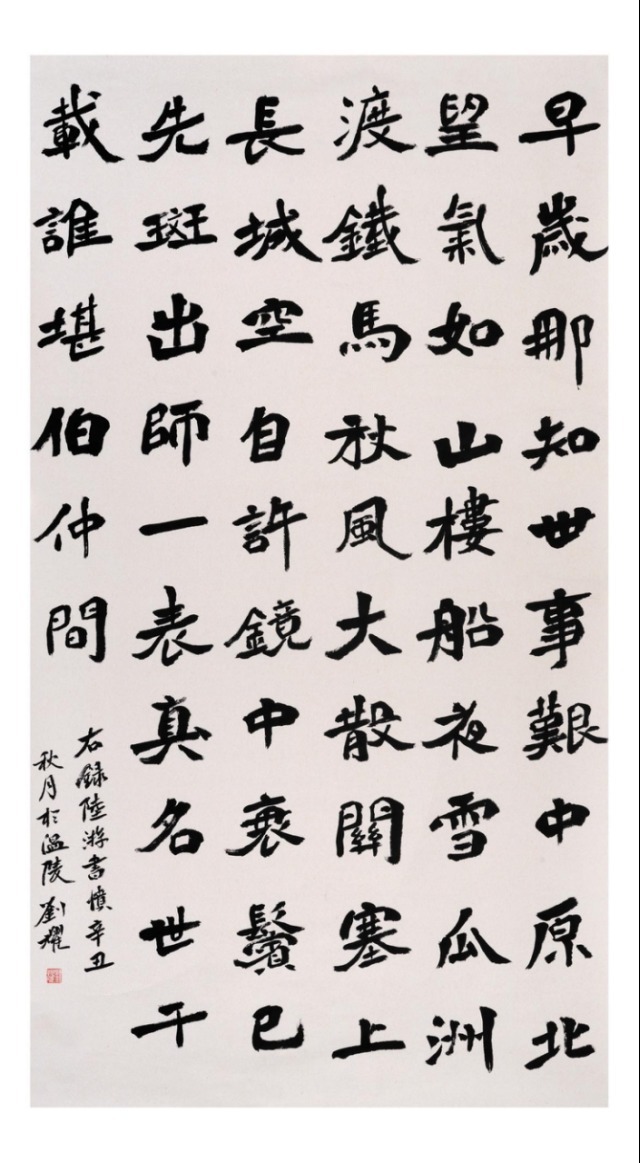 早歲那知世事艱中原北
望氣如山樓船夜雪瓜洲
渡鐵馬秋風大散關塞上
長城空自許鏡中衰鬢已
先斑出師一表真名世千
載誰堪伯仲間
右錄陸游書憤辛丑
秋月於溫陵劉耀